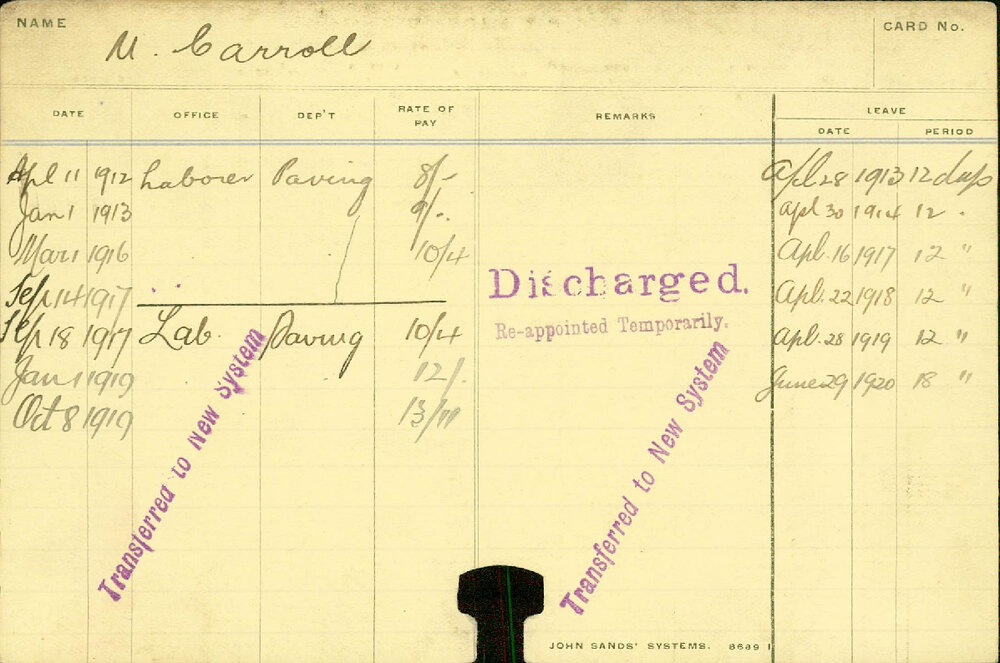 NAME M. Carroll CARD No.
DATE OFFICE DEP'T RATE OF PAY REMARKS LEAVE
DATE PERIOD
Apl 11 1912 Laborer Paving 8/- Apl 28 1913 12 days
Jan 1 1913 9/- Apl 30 1914 12 "
Mar 1 1916 10/4 Apl. 16 1917 12 "
Sep 14 1917 " Discharged. Apl. 22 1918 12 "
Sep 18 1917 Lab. Paving 10/4 Re-appointed Temporarily. Apl. 28 1919 12 "
Jan 1 1919 12/- June 29 1920 18 "
Oct 8 1919 13/11
Transferred to New System
Transferred to New System
JOHN SANDS' SYSTEMS. 8689